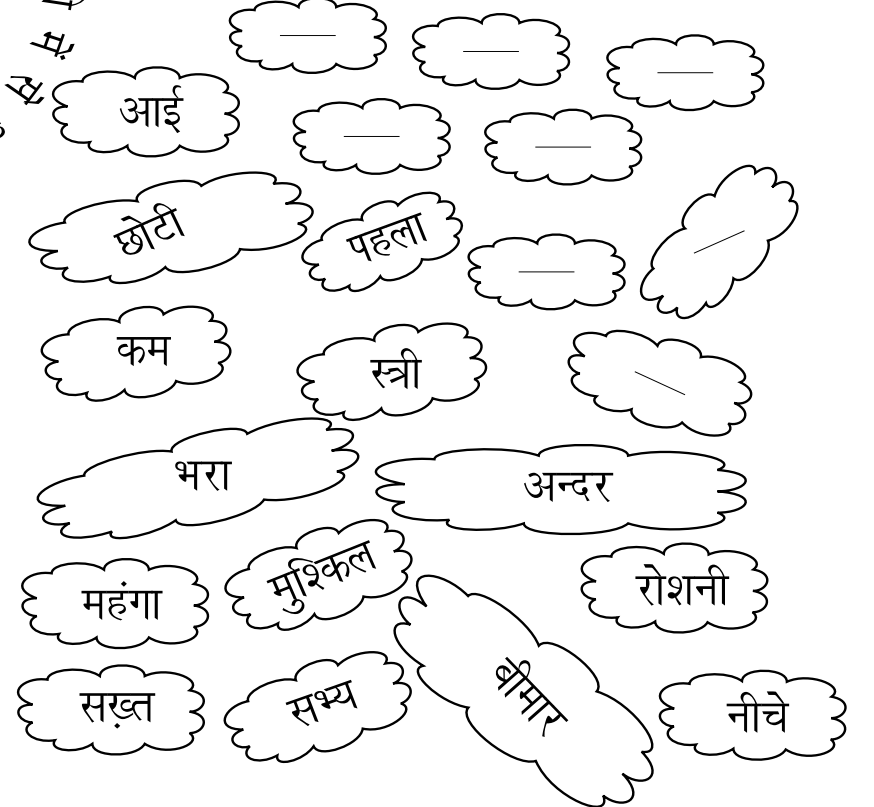 आई
छोटी
पहला
कम
स्त्री
भरा
अन्दर
महंगा
मुश्किल
रोशनी
सख़्त
सभ्य
बीमार
नीचे